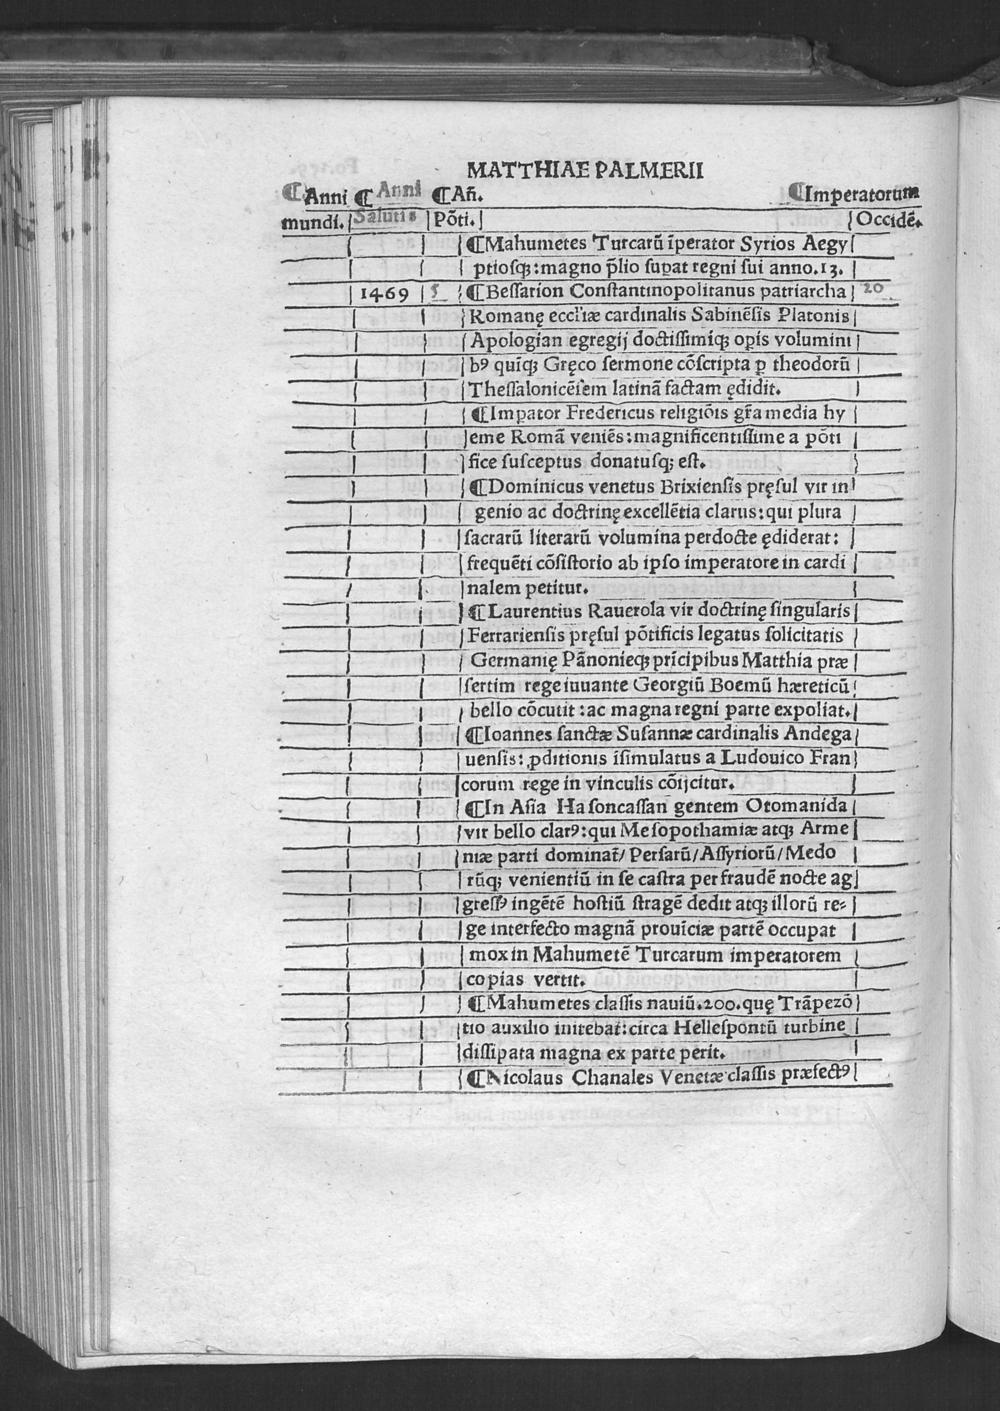 MATTHIAE PALMERII
¶Anni ¶Anni ¶Añ. ¶Imperatorum
mundi. Salutis Põti. Occidẽ.
¶Mahumetes Turcarũ ĩperator Syrios Aegy
ptiosqꝫ:magno p̃lio suꝑat regni sui anno.13.
1469 5 ¶Bessarion Constantinopolitanus patriarcha 20
Romanę eccl'iæ cardinalis Sabinẽsis Platonis
Apologian egregij doctissimiqꝫ oꝑis volumini
bꝰ quĩqꝫ Gręco sermone cõscripta ꝑ theodorũ
Thessalonicẽsem latinã factam ędidit.
¶Impator Fredericus religiõis gr̃a media hy
eme Romã veniẽs:magnificentissime a põti
fice susceptus donatusqꝫ est.
¶Dominicus venetus Brixiensis pręsul vir in
genio ac doctrinę excellẽtia clarus:qui plura
sacrarũ literarũ volumina perdocte ędiderat:
frequẽti cõsistorio ab ipso imperatore in cardi
nalem petitur.
¶Laurentius Rauerola vir doctrinę singularis
Ferrariensis pręsul põtificis legatus solicitatis
Germanię Pãnonieqꝫ prĩcipibus Matthia præ
sertim rege iuuante Georgiũ Boemũ hæreticũ
bello cõcutit:ac magna regni parte expoliat.
¶Ioannes sanctæ Susannæ cardinalis Andega
uensis:ꝓditionis ĩsimulatus a Ludouico Fran
corum rege in vinculis cõijcitur.
¶In Asia Hasoncassan gentem Otomanida
vir bello clarꝰ:qui Mesopothamiæ atqꝫ Arme
niæ parti dominat̃/Persarũ/Assyriorũ/Medo
rũqꝫ venientiũ in se castra per fraudẽ nocte ag
gressꝰ ingẽtẽ hostiũ stragẽ dedit atqꝫ illorũ re⸗
ge interfecto magnã prouĩciæ partẽ occupat
mox in Mahumetẽ Turcarum imperatorem
copias vertit.
¶Mahumetes classis nauiũ.200.quę Trãpezõ
tio auxilio initebat̃:circa Hellespontũ turbine
dissipata magna ex parte perit.
¶Nicolaus Chanales Venetæ classis præfectꝰ